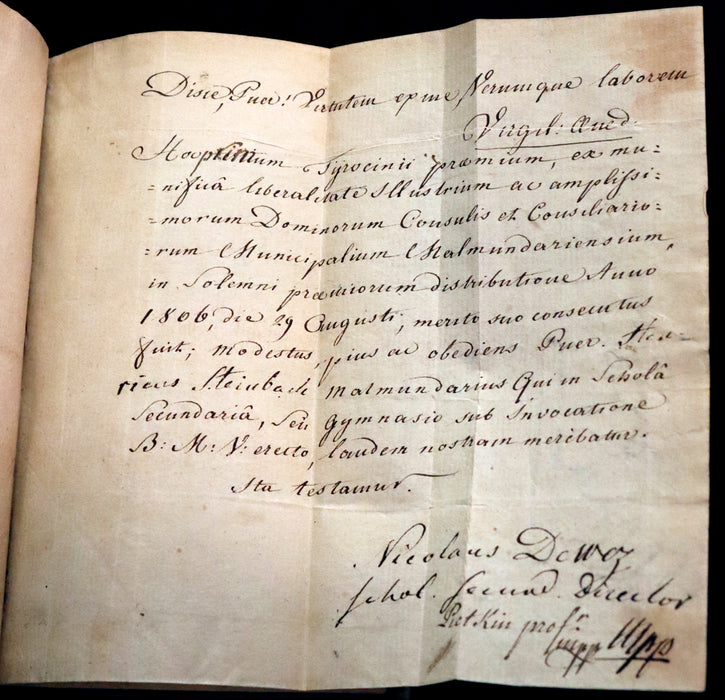 Disce, Puer! Virtutem ex me Verumque laborem
Virgil: Æned:
Hoc primum Tyrocinii præmium, ex mu-
-nificâ liberalitate Illustrium ac ampliſsi-
-morum Dominorum Consulis et Consiliario-
-rum Municipalium Malmundariensium,
in Solemni præmiorum distributione Anno
1806, die 29 Augusti, merito suo consecutus
fuit; modestus, pius ac obediens Puer. Hen-
ricus Steinbach Malmundarius Qui in Scholâ
Secundariâ, Seu Gymnasio sub Invocatione
B: M: V: erecto, laudem nostram merebatur.
Ita testamur.
Nicolaus Dewez
schol. secund. director
Piet Kin prof.r